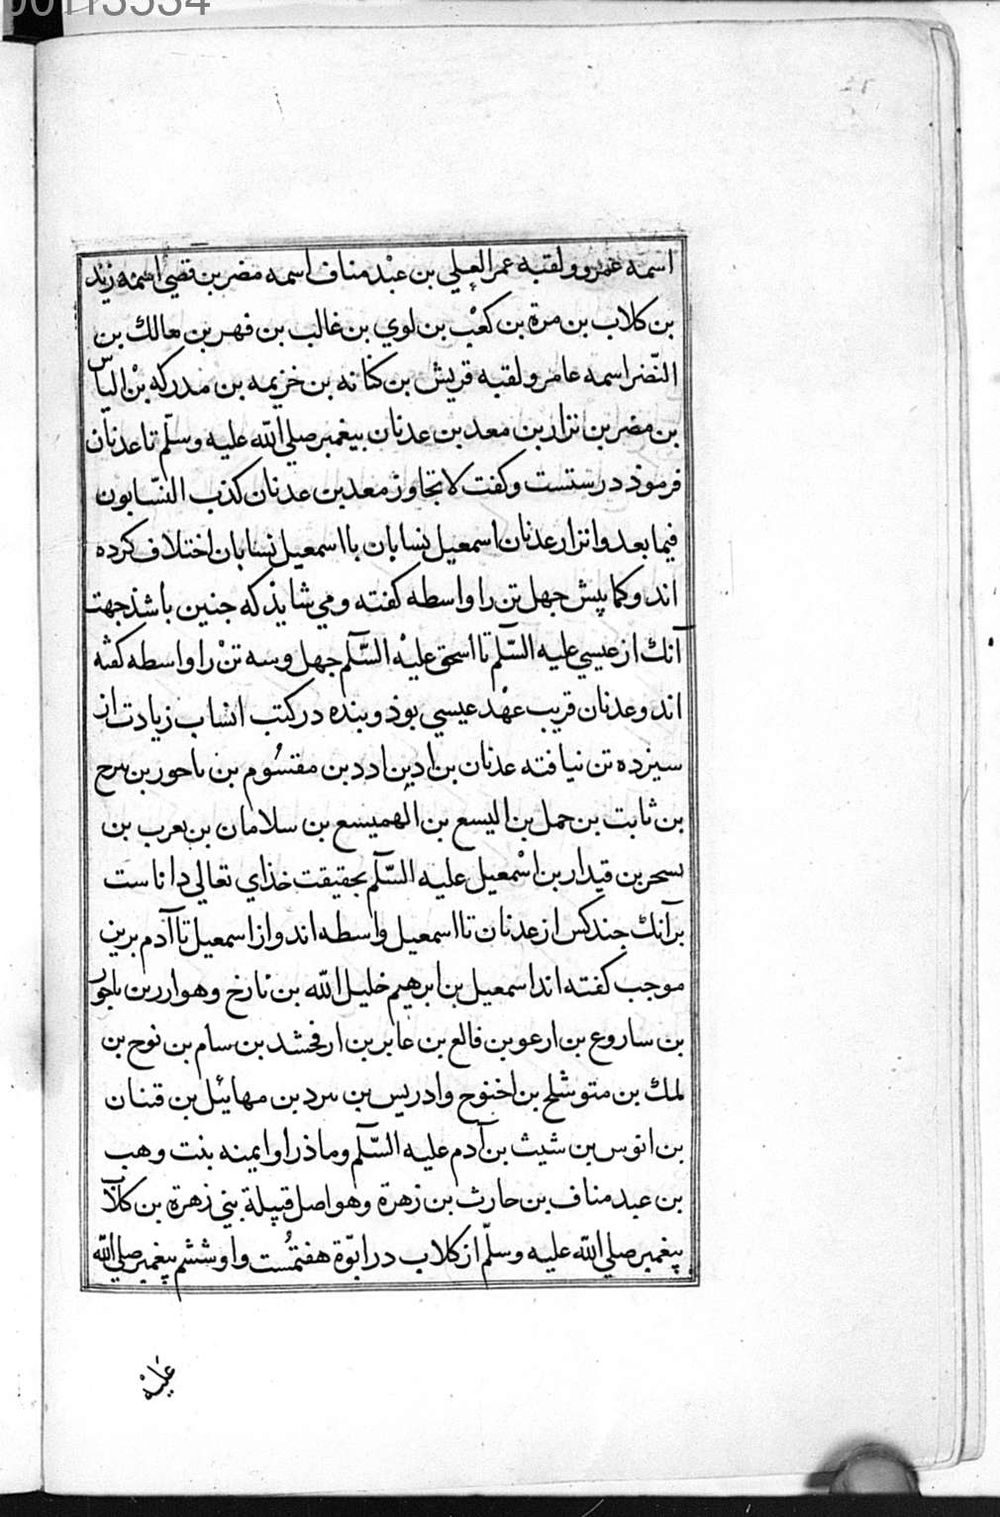 00113534
اسمه عمرو ولقبه عمر العلي بن عبد مناف اسمه مضر بن قصي اسمه زيد
بن كلاب بن مرة بن كعب بن لوي بن غالب بن فهر بن مالك بن
النضر اسمه عامر ولقبه قريش بن كنانه بن خزيمه بن مدركه بن الياس
بن مضر بن نزار بن معد بن عدنان پيغمبر صلي الله عليه وسلم تا عدنان
فرموذ درستست وكفت لا تجاوز معد بن عدنان كذب النسابون
فيما بعد واز عدنان اسمعيل نسابان با اسمعيل نسابان اختلاف كرده
اند وكما پيش جهل تن را واسطه كفته و مي شايذ كه جنين باشذ جهت
آنك از عيسي عليه السلم تا اسحق عليه السلم جهل وسه تن را واسطه كفته
اند وعدنان قريب عهد عيسي بوذ وبنده در كتب انساب زيادت از
سيزده تن نيافته عدنان بن اد بن ادد بن مقسوم بن ناحور بن سرح
بن ثابت بن حمل بن اليسع بن الهميسع بن سلامان بن يعرب بن
سحر بن قيدار بن اسمعيل عليه السلم بحقيقت خذاي تعالي داناست
برآنك جند كس از عدنان تا اسمعيل واسطه اند واز اسمعيل تا آدم برين
موجب كفته اند اسمعيل بن ابرهيم خليل الله بن تارخ وهو ازر بن ناحور
بن ساروع بن ارعو بن فالع بن عابر بن ارفخشد بن سام بن نوح بن
لمك بن متوشلخ بن اخنوح وادريس بن سرد بن مهائيل بن قنان
بن انوس بن شيث بن آدم عليه السلم وماذر او ايمنه بنت وهب
بن عبد مناف بن حارث بن زهرة وهو اصل قبيلة بني زهرة بن كلاب
پيغمبر صلي الله عليه وسلم از كلاب در ابوة هفتمست واو ششم پيغمبر صلي الله
عليه